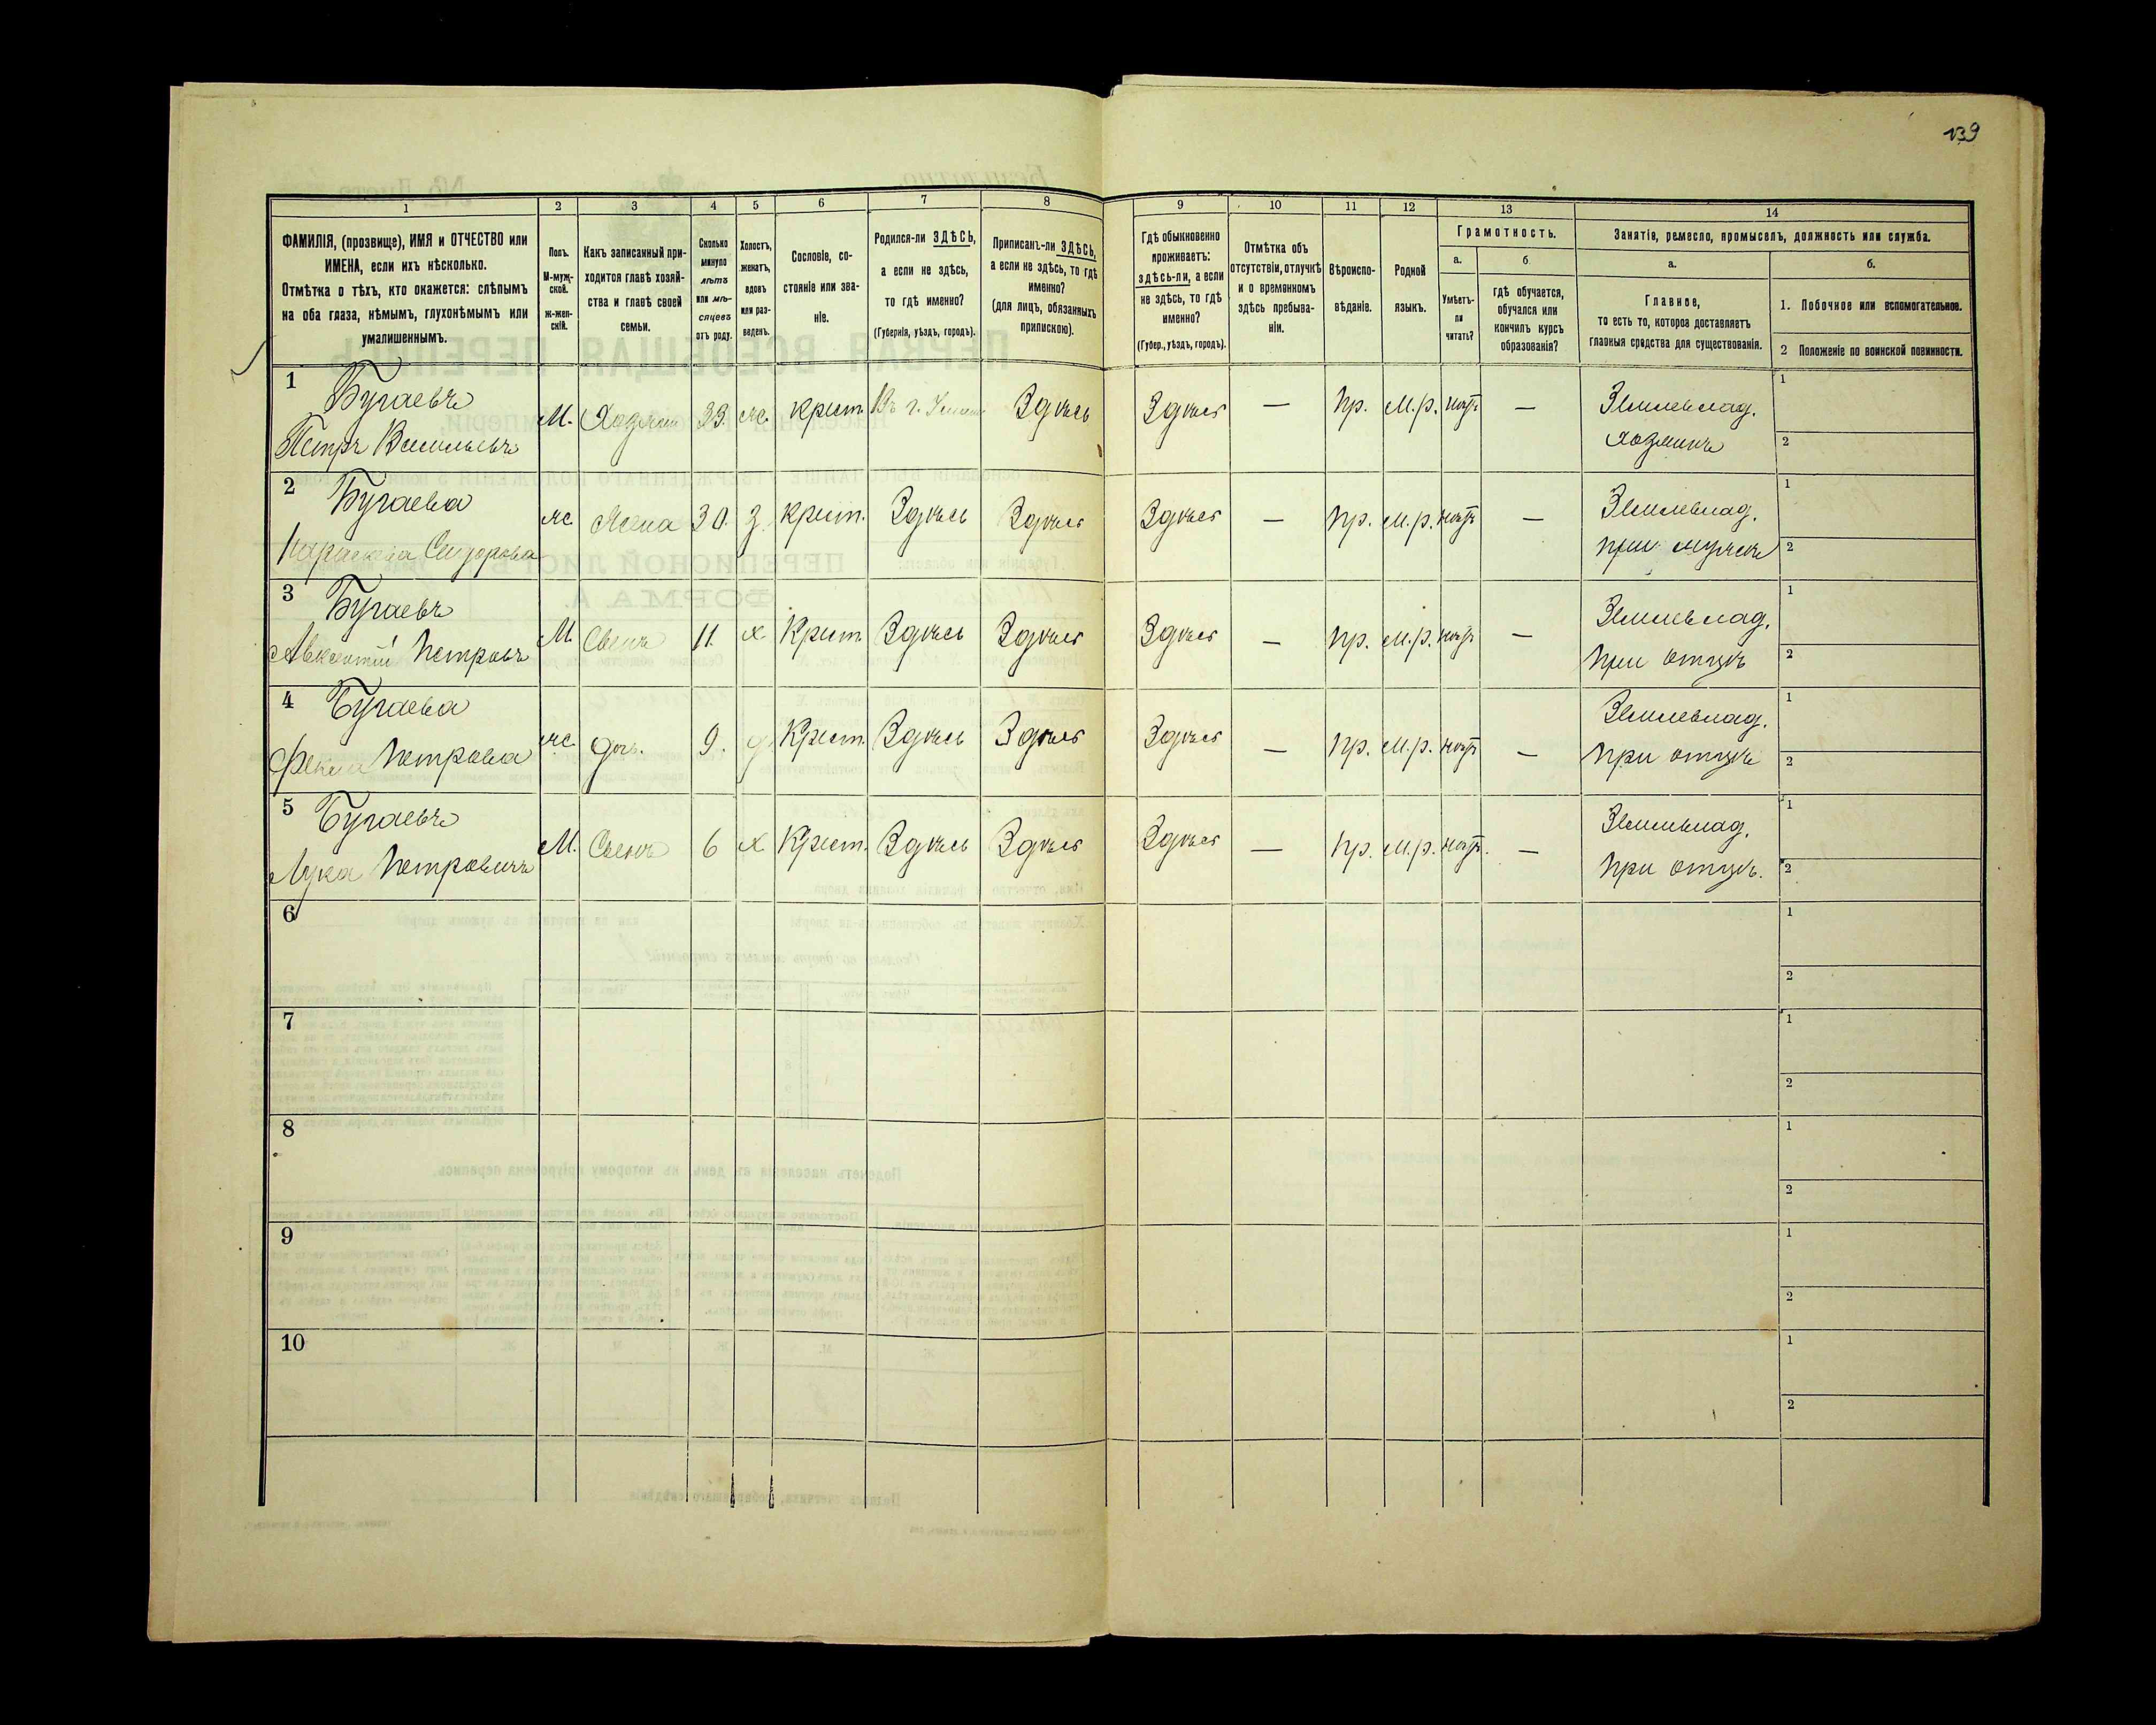 139
1 2 3 4 5 6 7 8 9 10 11 12 13 14
ФАМИЛІЯ, (прозвище), ИМЯ и ОТЧЕСТВО или
ИМЕНА, если ихъ нѣсколько.
Отмѣтка о тѣхъ, кто окажется: слѣпымъ
на оба глаза, нѣмымъ, глухонѣмымъ или
умалишеннымъ.
Полъ.
М-муж-
ской.
ж-жен-
скій.
Какъ записанный при-
ходится главѣ хозяй-
ства и главѣ своей
семьи.
Сколько
минуло
лѣтъ
или мѣ-
сяцевъ
отъ роду.
Холостъ,
женатъ,
вдовъ
или раз-
веденъ.
Сословіе, со-
стояніе или зва-
ніе.
Родился-ли ЗДѢСЬ,
а если не здѣсь,
то гдѣ именно?
(Губернія, уѣздъ, городъ).
Приписанъ-ли ЗДѢСЬ,
а если не здѣсь, то гдѣ
именно?
(для лицъ, обязанныхъ
припискою).
Гдѣ обыкновенно
проживаетъ:
здѣсь-ли, а если
не здѣсь, то гдѣ
именно?
(Губер., уѣздъ, городъ).
Отмѣтка объ
отсутствіи, отлучкѣ
и о временномъ
здѣсь пребыва-
ніи.
Вѣроиспо-
вѣданіе.
Родной
языкъ.
Грамотность.
а.
Умѣетъ-
ли
читать?
б
гдѣ обучается,
обучался или
кончилъ курсъ
образованія?
Занятіе, ремесло, промыселъ, должность или служба.
а.
Главное,
то есть то, которое доставляетъ
главныя средства для существованія.
б.
1. Побочное или вспомогательное.
2 Положеніе по воинской повинности.
1 Бугаевъ
Петръ Васильевъ
М. Хозяинъ 33. ж. крест. Въ г. Здѣсь Здѣсь — пр. м.р. нѣтъ — Землевлад.
хозяинъ
1
2
2 Бугаева
Параскева Сидорова
ж. жена 30. з. крест. Здѣсь Здѣсь Здѣсь — пр. м.р. нѣтъ — Землевлад.
при мужѣ
1
2
3 Бугаевъ
Авксентій Петровъ
М. Сынъ 11. х Крест. Здѣсь Здѣсь Здѣсь — пр. м.р. нѣтъ — Землевлад.
при отцѣ
1
2
4 Бугаева
Фекла Петрова
ж. дочь. 9. д. Крест. Здѣсь Здѣсь Здѣсь — пр. м.р. нѣтъ — Землевлад.
при отцѣ
1
2
5 Бугаевъ
Лука Петровичъ
М. Сынъ 6 х Крест. Здѣсь Здѣсь Здѣсь — пр. м.р. нѣтъ. — Землевлад.
при отцѣ.
1
2
6
1
2
7
1
2
8
1
2
9
1
2
10
1
2